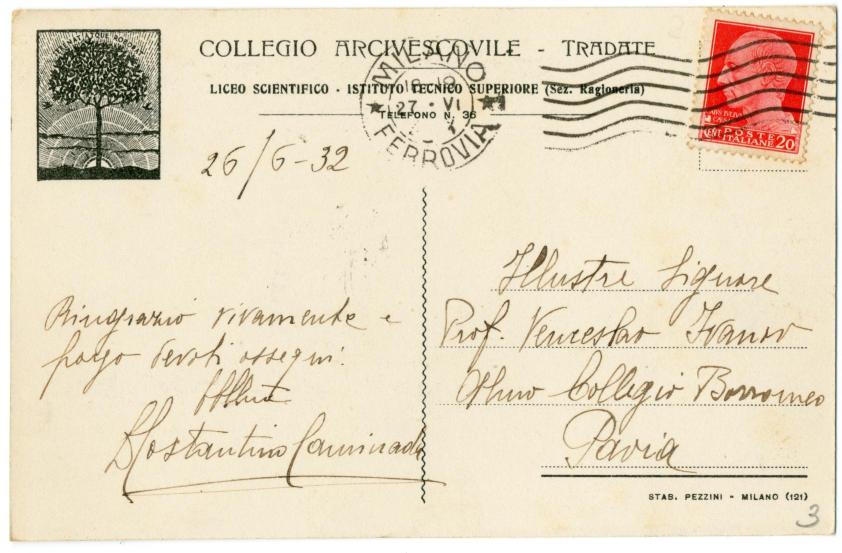 COLLEGIO ARCIVESCOVILE - TRADATE
LICEO SCIENTIFICO - ISTITUTO TECNICO SUPERIORE (Sez. Ragioneria)
TELEFONO N. 36
MILANO
27 · VI
FERROVIA
CENT POSTE ITALIANE 20
26/6-32
Ringrazio vivamente e
porgo devoti ossequi.
D Costantino Caminada
Illustre Signore
Prof. Venceslao Ivanov
Almo Collegio Borromeo
Pavia
STAB. PEZZINI - MILANO (121)
3